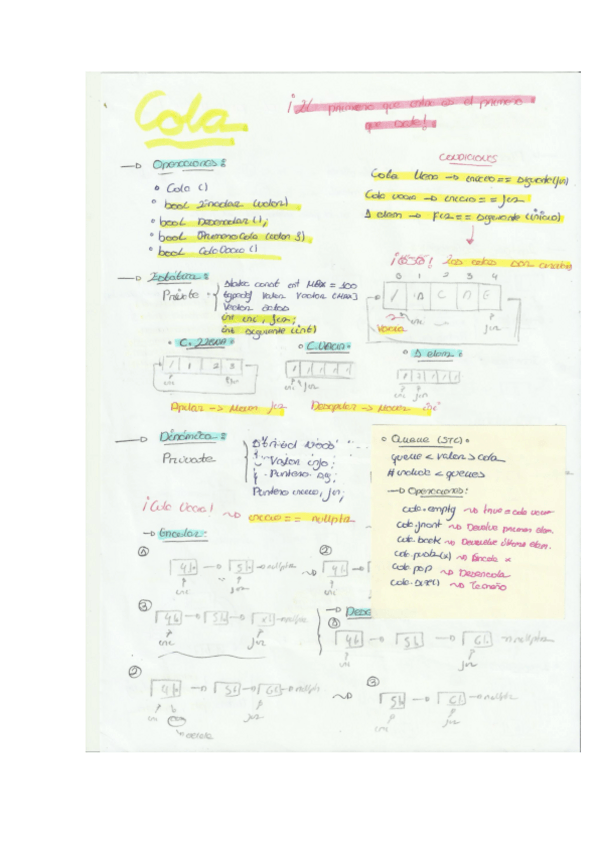 Cola
¡El primero que entra es el primero
que sale!
→ Operaciones:
• Cola ()
• bool Encolar (valor)
• bool Desencolar ();
• bool PrimeroCola (valor &)
• bool ColaVacia ()
CONDICIONES
Cola llena → inicio == siguiente(fin)
Cola vacia → inicio == fin
1 elem → fin == siguiente (inicio)
→ Estática:
Private
Static const int MAX = 100
typedef Valor Vector [MAX]
Vector datos
int ini, fin;
int siguiente (int)
0 1 2 3 4
Vacia
ini
fin
• C. llena:
• C. Vacia:
• 1 elem:
1 2 3
ini
fin
ini fin
ini fin
Apilar → Mover fin
Desapilar → Mover ini
→ Dinámica:
Private
Struct Nodo
Valor info;
Puntero sig;
Puntero inicio, fin;
¡Cola Vacia! → inicio == nullptr
• Queue (STL)
queue <valor> cola
#include <queue>
→ Operaciones:
cola.empty → true = cola vacia
cola.front → Devuelve primer elem.
cola.back → Devuelve último elem.
cola.push(x) → Encola x
cola.pop → Desencola
cola.size() → Tamaño
→ Encolar:
① 4 → 5 → nullptr
ini
fin
②
4 → 5
ini
③ 4 → 5 → 6 → nullptr
ini
fin
→ Dese
① 4 → 5 → 6 → nullptr
ini
fin
② 4 → 5 → 6 → nullptr
ini
fin
③ 5 → 6 → nullptr
ini
fin